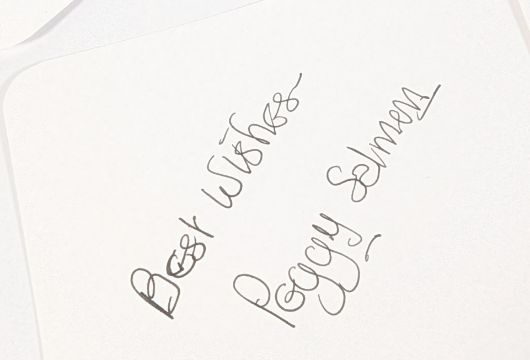 Best Wishes
Peggy Salmen